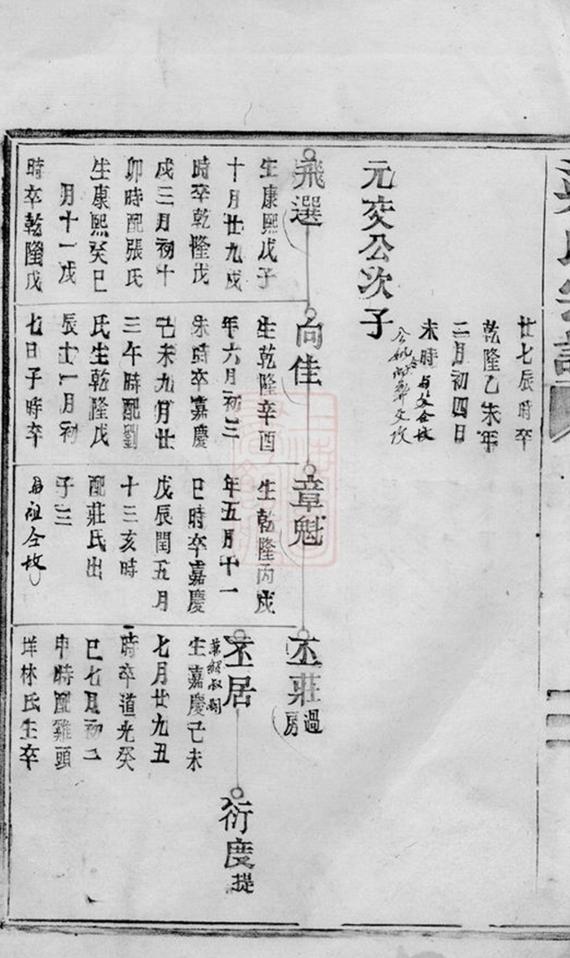 廿七辰時卒
乾隆乙未年
二月初四日
未時
元交公次子
飛選
生康熙戊子
十月廿九戌
時卒乾隆戊
戌三月初十
卯時配張氏
生康熙癸巳
月十一戌
時卒乾隆戊
向佳
生乾隆辛酉
年六月初三
朱時卒嘉慶
己未九月廿
三午時配劉
氏生乾隆戊
辰十一月初
七日子時卒
章魁
生乾隆丙戌
年五月十一
巳時卒嘉慶
戊辰閏五月
十三亥時
配莊氏出
子三
與祖仝坟
丕莊過房
丕居
生嘉慶己未
七月廿九丑
時卒道光癸
巳七月初二
申時配雞頭
垟林氏生卒
衍度提